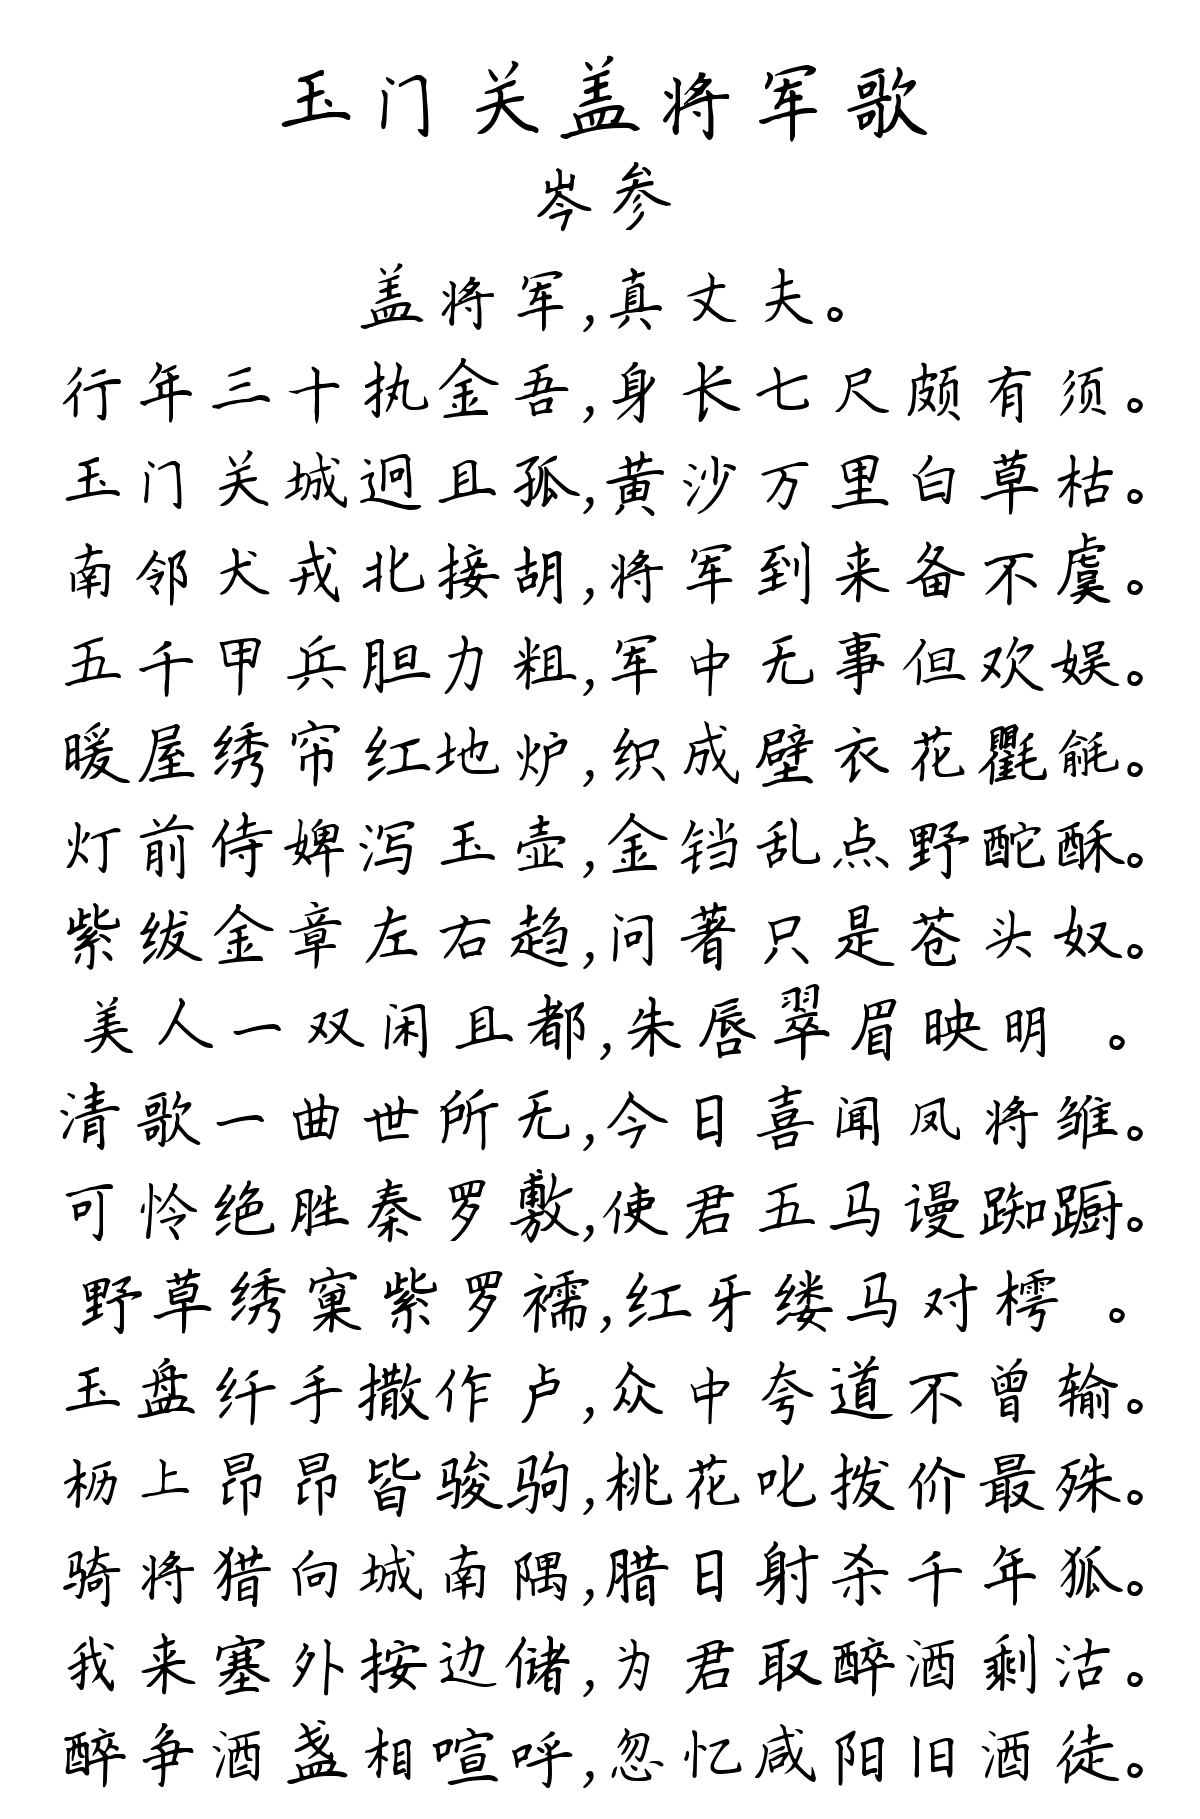 玉门关盖将军歌
岑参
盖将军,真丈夫。
行年三十执金吾,身长七尺颇有须。
玉门关城迥且孤,黄沙万里白草枯。
南邻犬戎北接胡,将军到来备不虞。
五千甲兵胆力粗,军中无事但欢娱。
暖屋绣帘红地炉,织成壁衣花氍毹。
灯前侍婢泻玉壶,金铛乱点野酡酥。
紫绂金章左右趋,问著只是苍头奴。
美人一双闲且都,朱唇翠眉映明 。
清歌一曲世所无,今日喜闻凤将雏。
可怜绝胜秦罗敷,使君五马谩踟蹰。
野草绣窠紫罗襦,红牙缕马对樗 。
玉盘纤手撒作卢,众中夸道不曾输。
枥上昂昂皆骏驹,桃花叱拨价最殊。
骑将猎向城南隅,腊日射杀千年狐。
我来塞外按边储,为君取醉酒剩沽。
醉争酒盏相喧呼,忽忆咸阳旧酒徒。